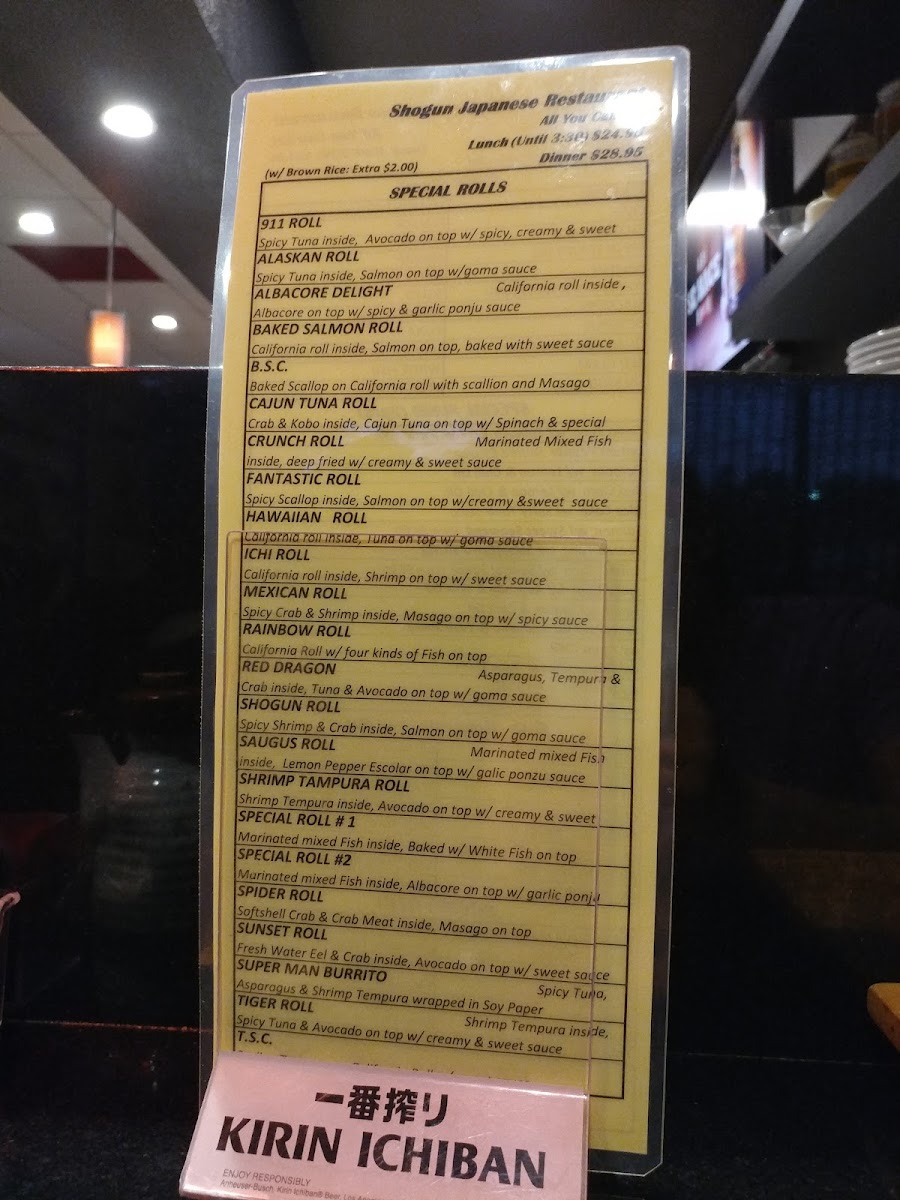 Shogun Japanese
All You
Lunch (Until 3:30)
Dinner $28.95
(w/ Brown Rice: Extra $2.00)
SPECIAL ROLLS
911 ROLL
Spicy Tuna inside, Avocado on top w/ spicy, creamy & sweet
ALASKAN ROLL
Spicy Tuna inside, Salmon on top w/goma sauce
ALBACORE DELIGHT California roll inside,
Albacore on top w/ spicy & garlic ponju sauce
BAKED SALMON ROLL
California roll inside, Salmon on top, baked with sweet sauce
B.S.C.
Baked Scallop on California roll with scallion and Masago
CAJUN TUNA ROLL
Crab & Kobo inside, Cajun Tuna on top w/ Spinach & special
CRUNCH ROLL Marinated Mixed Fish
inside, deep fried w/ creamy & sweet sauce
FANTASTIC ROLL
Spicy Scallop inside, Salmon on top w/creamy &sweet sauce
HAWAIIAN ROLL
California roll inside, Tuna on top w/ goma sauce
ICHI ROLL
California roll inside, Shrimp on top w/ sweet sauce
MEXICAN ROLL
Spicy Crab & Shrimp inside, Masago on top w/ spicy sauce
RAINBOW ROLL
California Roll w/ four kinds of Fish on top
RED DRAGON Asparagus, Tempura &
Crab inside, Tuna & Avocado on top w/ goma sauce
SHOGUN ROLL
Spicy Shrimp & Crab inside, Salmon on top w/ goma sauce
SAUGUS ROLL Marinated mixed Fish
inside, Lemon Pepper Escolar on top w/ galic ponzu sauce
SHRIMP TAMPURA ROLL
Shrimp Tempura inside, Avocado on top w/ creamy & sweet
SPECIAL ROLL # 1
Marinated mixed Fish inside, Baked w/ White Fish on top
SPECIAL ROLL #2
Marinated mixed Fish inside, Albacore on top w/ garlic ponju
SPIDER ROLL
Softshell Crab & Crab Meat inside, Masago on top
SUNSET ROLL
Fresh Water Eel & Crab inside, Avocado on top w/ sweet sauce
SUPER MAN BURRITO Spicy Tuna,
Asparagus & Shrimp Tempura wrapped in Soy Paper
TIGER ROLL Shrimp Tempura inside,
Spicy Tuna & Avocado on top w/ creamy & sweet sauce
T.S.C.
一番搾り
KIRIN ICHIBAN
ENJOY RESPONSIBLY
Anheuser-Busch, Kirin Ichiban® Beer, Los